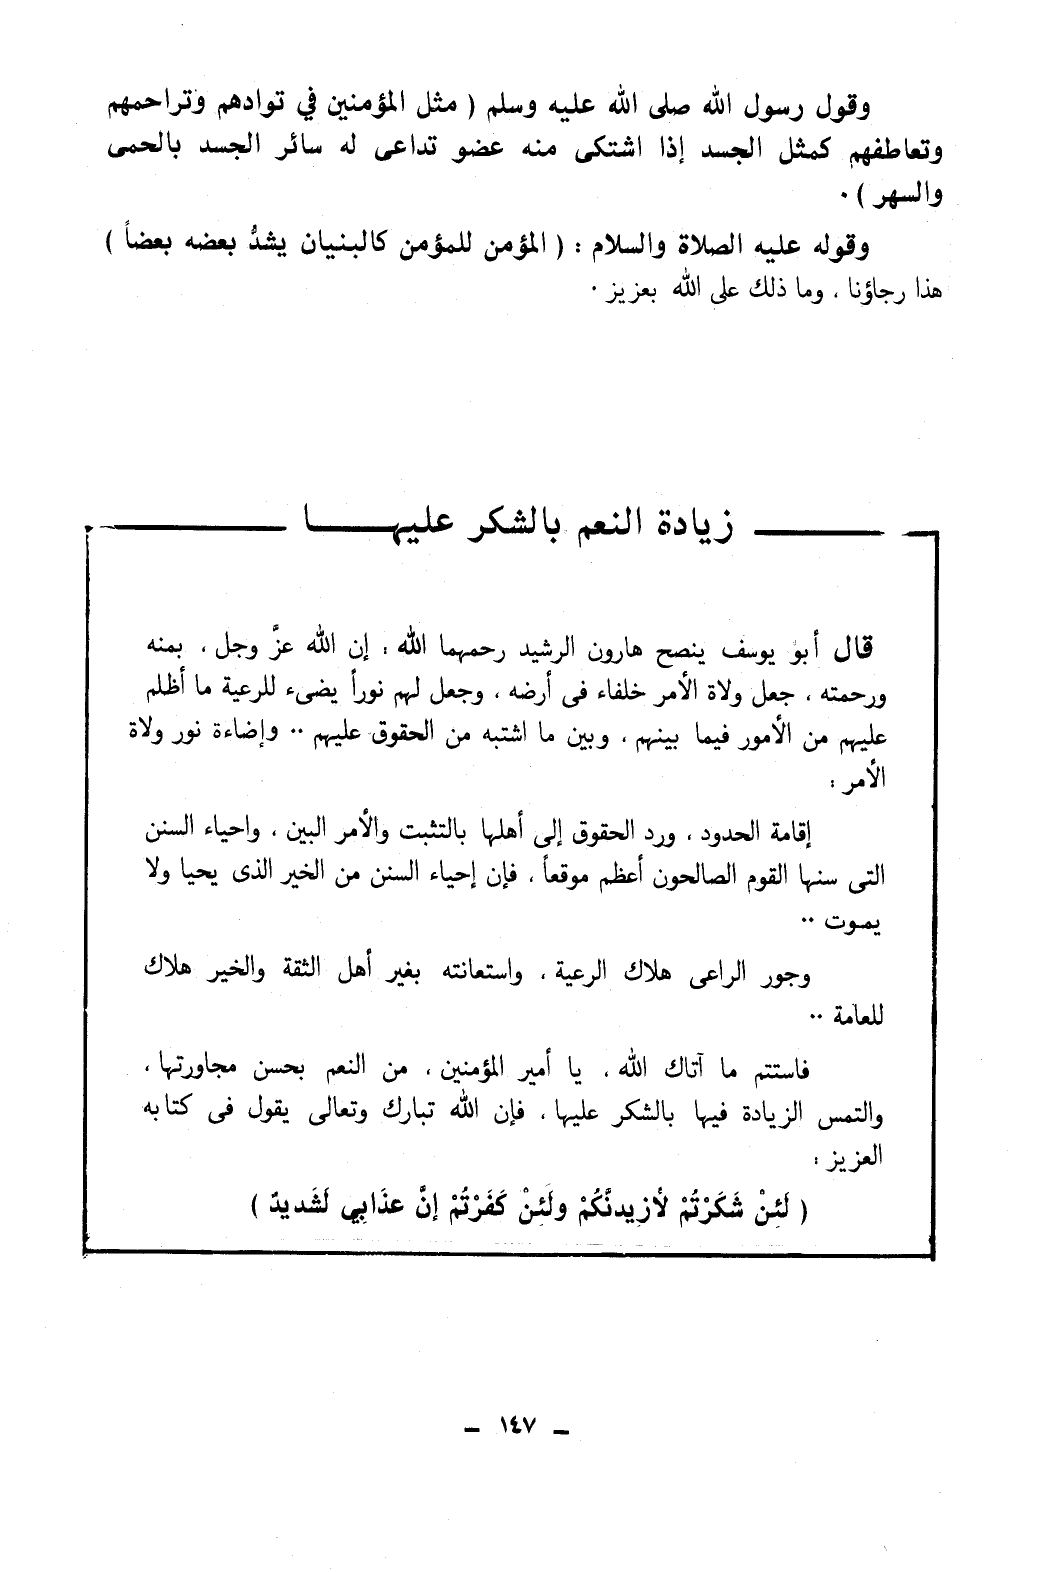 وقول رسول الله صلى الله عليه وسلم ( مثل المؤمنين في توادهم وتراحمهم
وتعاطفهم كمثل الجسد إذا اشتكى منه عضو تداعى له سائر الجسد بالحمى
والسهر ) .
وقوله عليه الصلاة والسلام : ( المؤمن للمؤمن كالبنيان يشدُّ بعضه بعضاً )
هذا رجاؤنا ، وما ذلك على الله بعزيز .
زيادة النعم بالشكر عليهـــا
قال أبو يوسف ينصح هارون الرشيد رحمهما الله : إن الله عزَّ وجل ، بمنه
ورحمته ، جعل ولاة الأمر خلفاء فى أرضه ، وجعل لهم نوراً يضىء للرعية ما أظلم
عليهم من الأمور فيما بينهم ، وبين ما اشتبه من الحقوق عليهم .. وإضاءة نور ولاة
الأمر :
إقامة الحدود ، ورد الحقوق إلى أهلها بالتثبت والأمر البين ، واحياء السنن
التى سنها القوم الصالحون أعظم موقعاً ، فإن إحياء السنن من الخير الذى يحيا ولا
يموت ..
وجور الراعى هلاك الرعية ، واستعانته بغير أهل الثقة والخير هلاك
للعامة ..
فاستتم ما آتاك الله ، يا أمير المؤمنين ، من النعم بحسن مجاورتها ،
والتمس الزيادة فيها بالشكر عليها ، فإن الله تبارك وتعالى يقول فى كتابه
العزيز :
( لَئِنْ شَكَرْتُمْ لأزيدنَّكُمْ ولَئِنْ كَفَرْتُمْ إنَّ عذَابي لَشديدٌ )
– ١٤٧ –